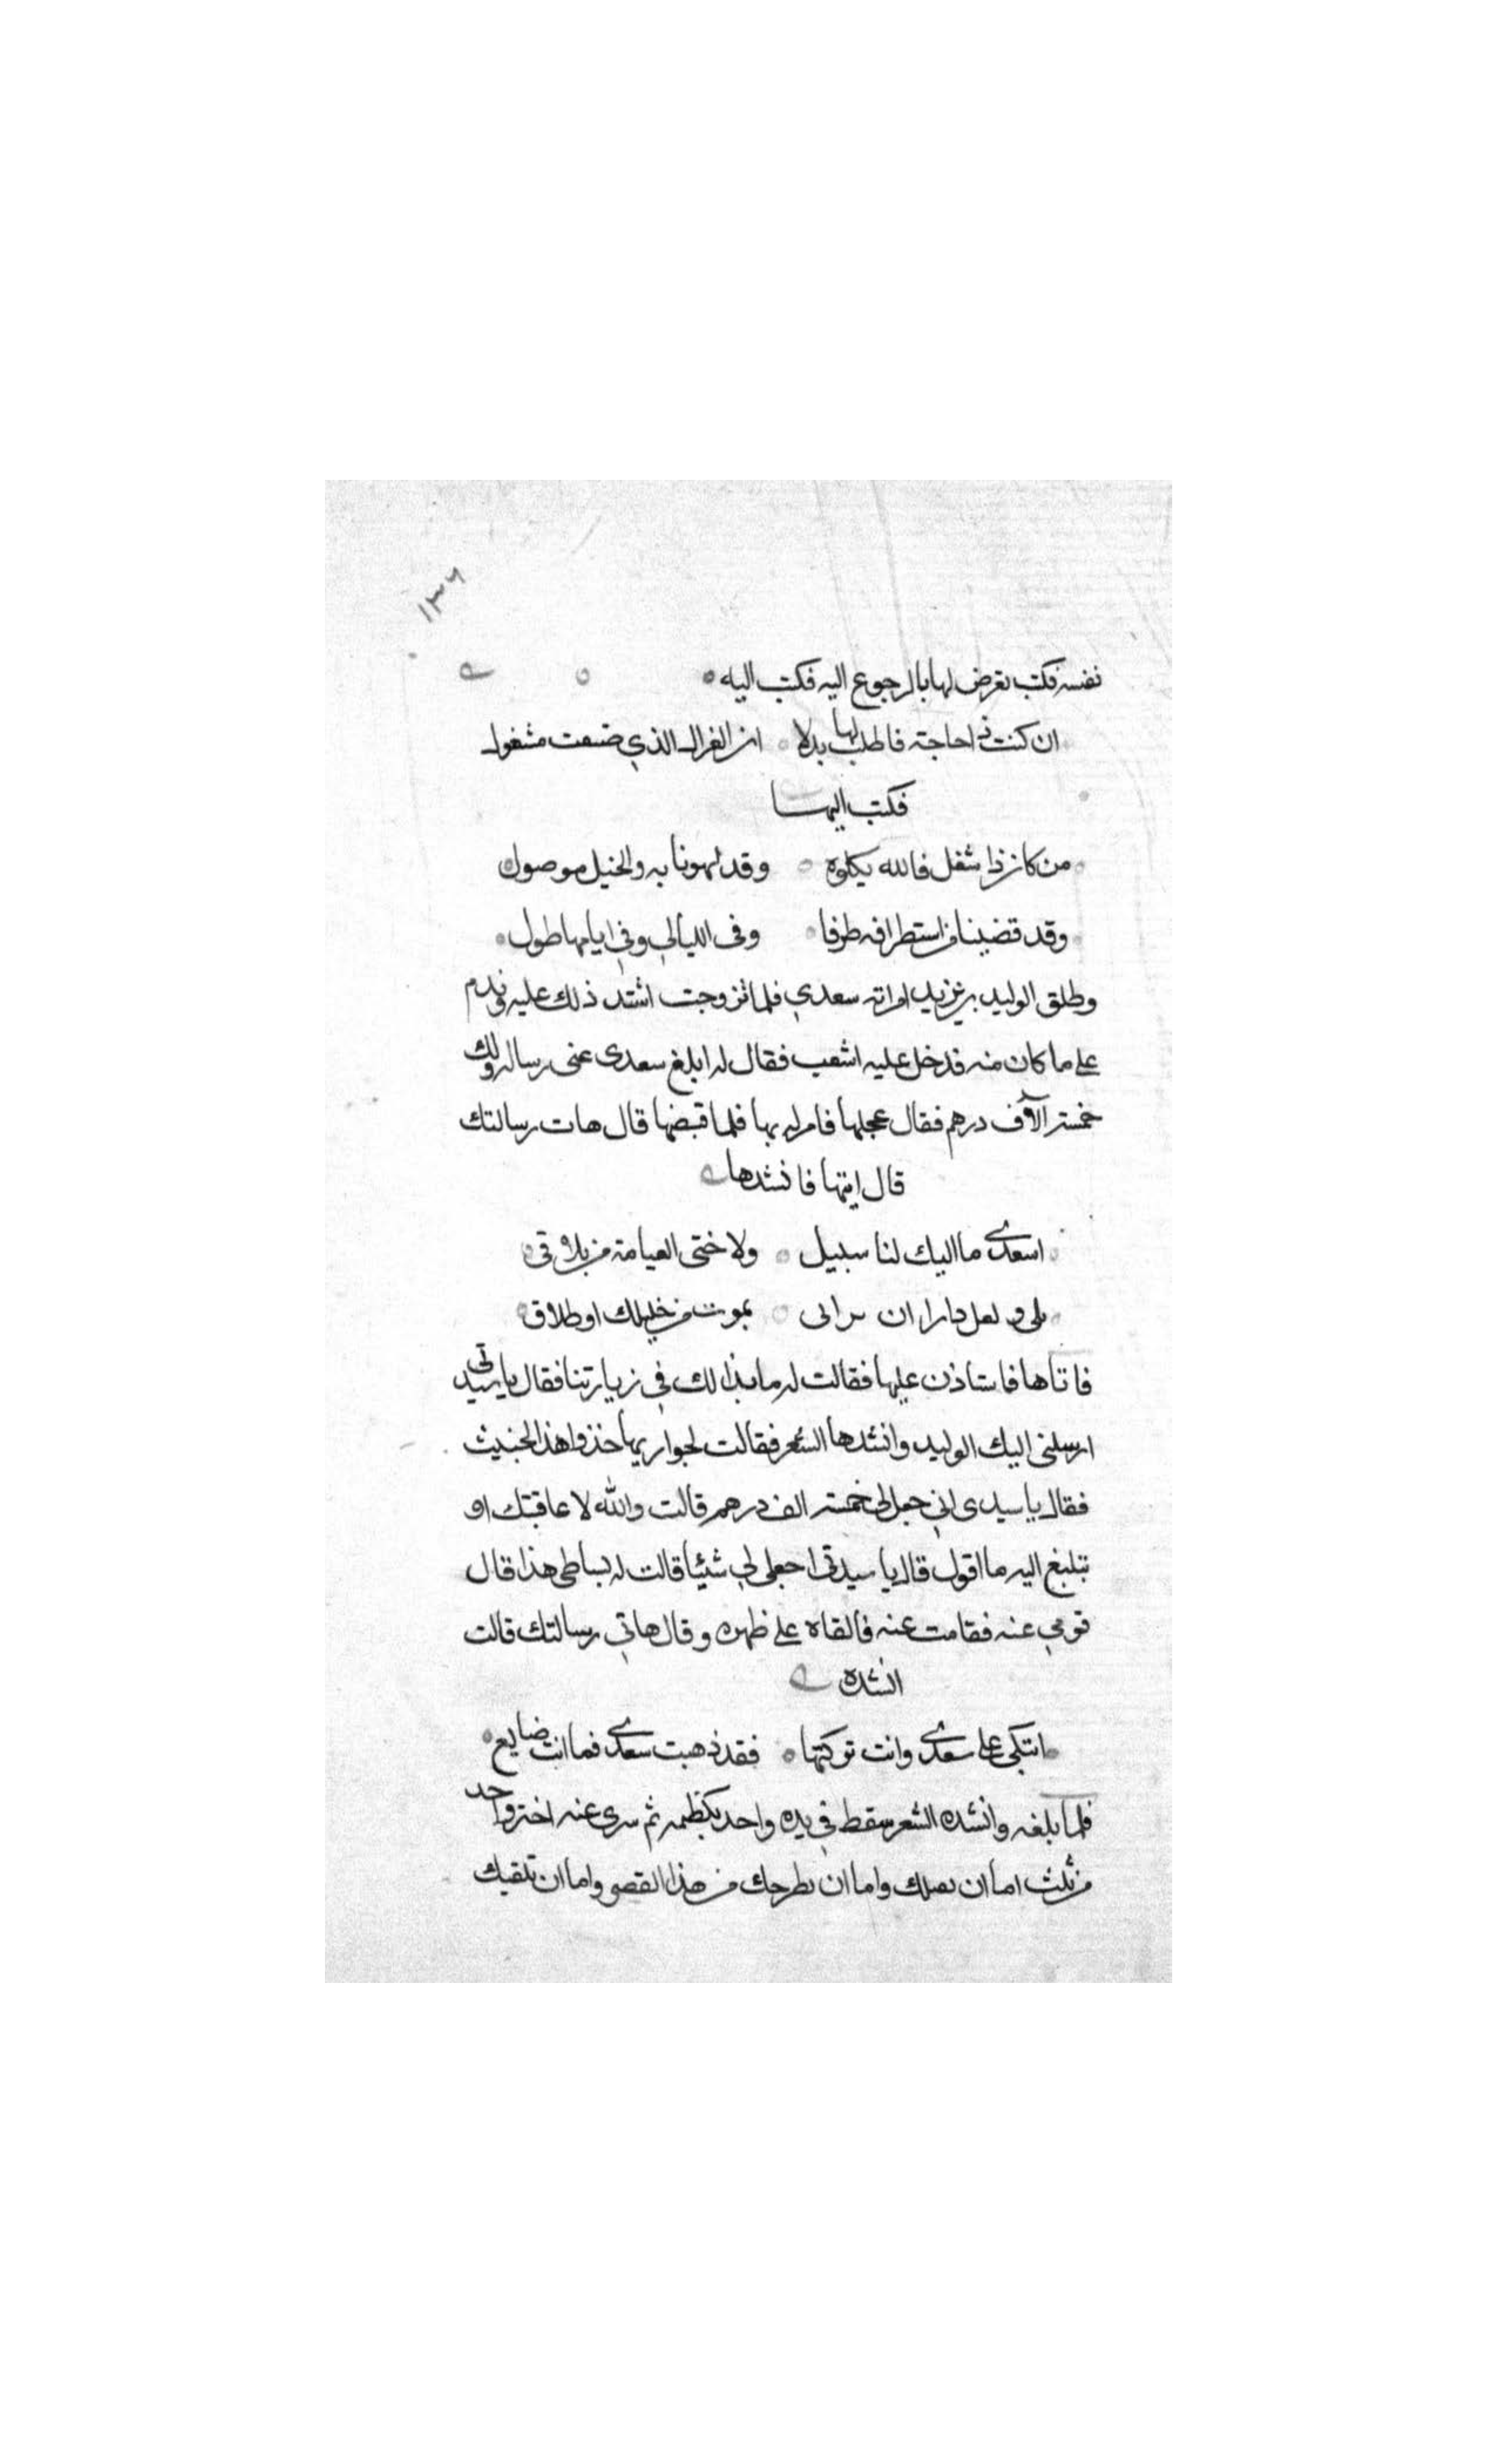 ١٣٦
نفسه فكتب يعرض لها بالرجوع اليه فكتب اليه
ان كنت ذا حاجة فاطلب لها بدلا ان الغزال الذي ضيعت مشغول
فكتب اليها
من كان ذا شغل فالله يكلوه وقد لهونا به والحبل موصول
وقد قضينا من استطرافه طرفا وفى الليالي وفي ايامها طول
وطلق الوليد بن يزيد امراته سعدي فلما تزوجت اشتد ذلك عليه وندم
على ما كان منه فدخل عليه اشعب فقال له ابلغ سعدى عنى رسالة ولك
خمسة آلاف درهم فقال عجلها فامر له بها فلما قبضها قال هات رسالتك
قال ايتها فانشدها
اسعدى ما اليك لنا سبيل ولا حتى القيامة من تلاقي
بلى ولعل دارا ان تراتى بموت من خليلك او طلاق
فاتاها فاستاذن عليها فقالت له ما بدا لك في زيارتنا فقال يا سيدتي
ارسلنى اليك الوليد وانشدها الشعر فقالت لجواريها خذوا هذا الخبيث
فقال يا سيدى اني جعل لي خمسة الف درهم قالت والله لا عاقبتك او
تبلغ اليه ما اقول قال يا سيدتي اجعلي لي شيئا قالت له بساطي هذا قال
قومي عنه فقامت عنه فالقاه على ظهره وقال هاتي رسالتك قالت
انشده
اتبكى على سعدى وانت تركتها فقد ذهبت سعدى فما انت ضايع
فلما بلغه وانشده الشعر سقط في يده واخذ بكظمه ثم سرى عنه اختر واحد
من ثلث اما ان نقتلك واما ان نطرحك من هذا القصر واما ان نلقيك